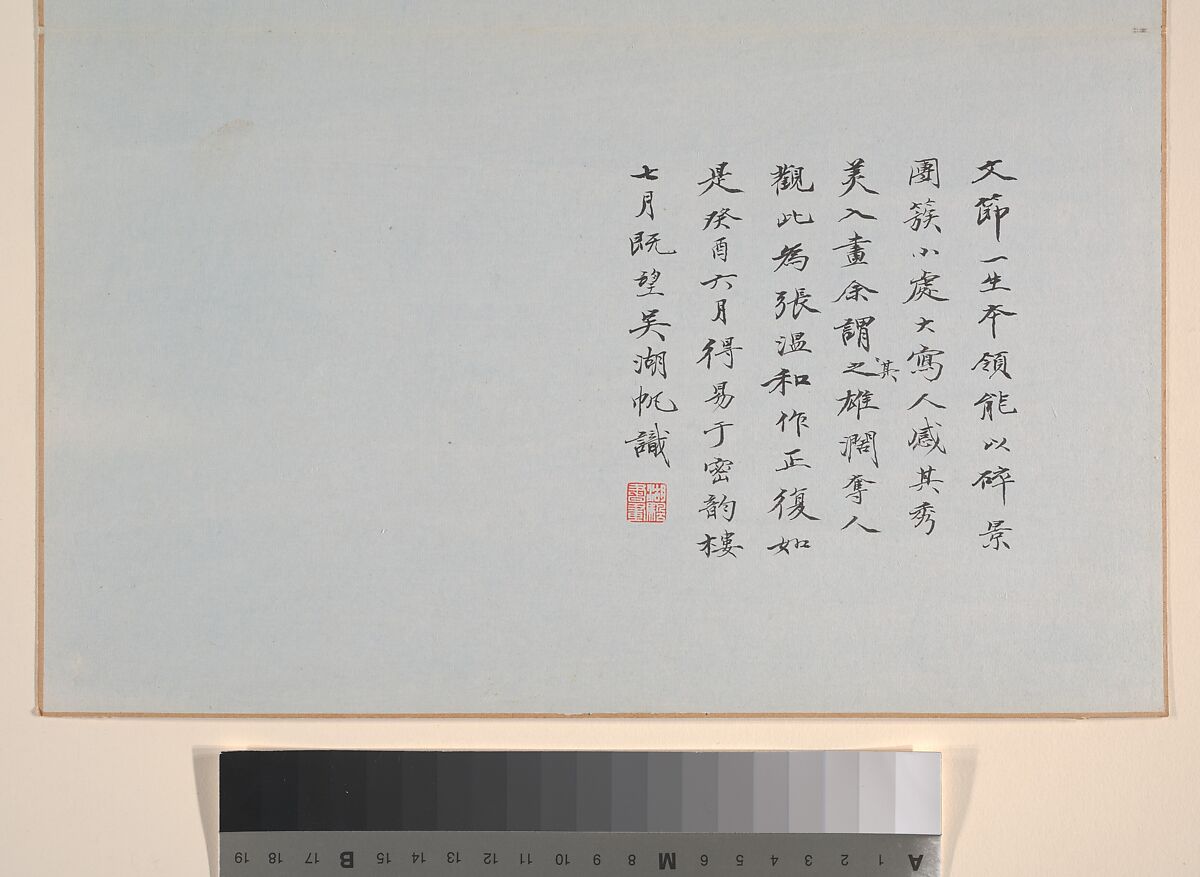 文節一生本領能以碎景
團簇小處大寫人感其秀
美入畫余謂之其雄濶奪人
觀此為張温和作正復如
是癸酉六月得易于密韵樓
七月既望吴湖帆識
湖颿書畫
19 18 17 B 15 14 13 12 11 10 9 8 M 6 5 4 3 2 1 A